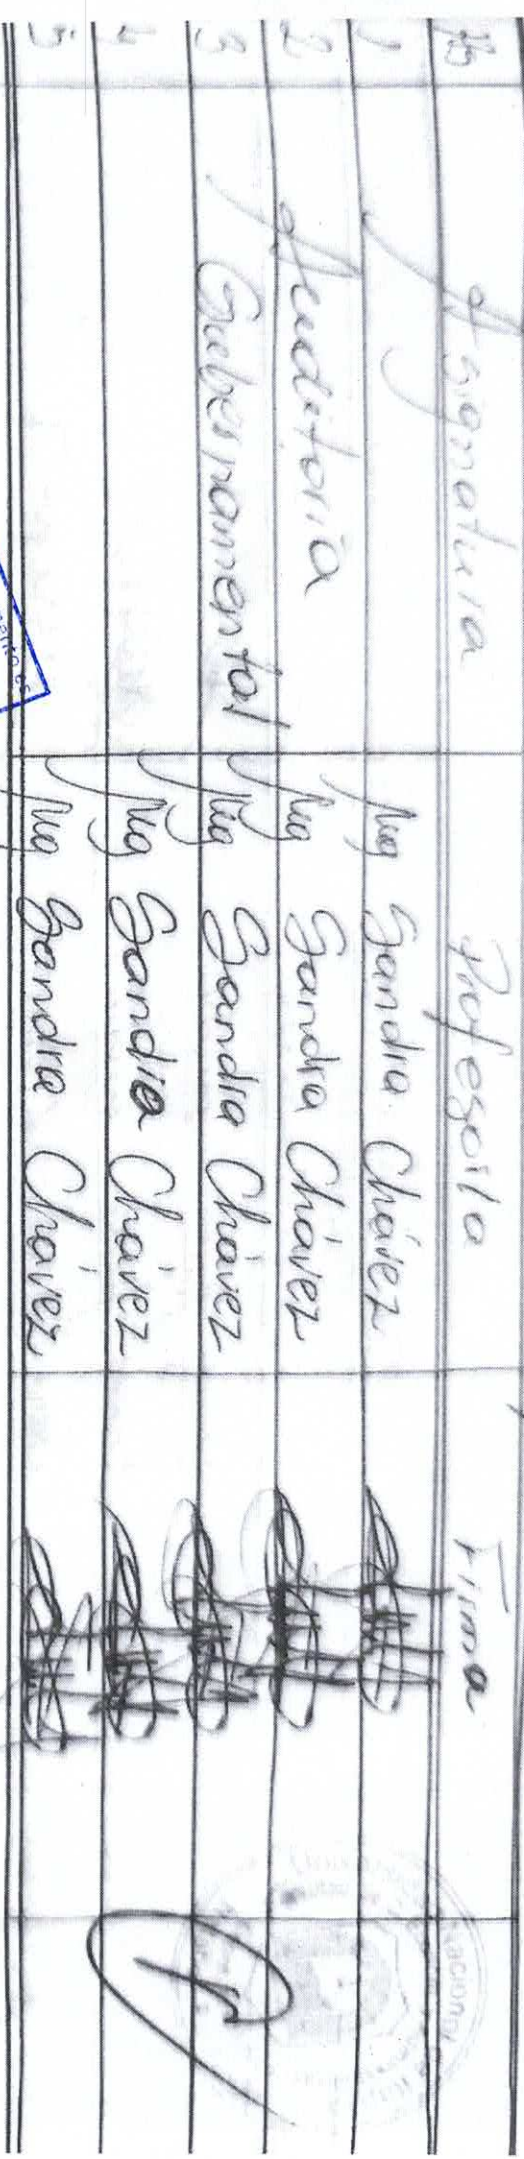 Asignatura Profesor/a Firma
1 Mg Sandra Chávez
2 Auditoría Mg Sandra Chávez
3 Gubernamental Mg Sandra Chávez
4 Mg Sandra Chávez
5 Mg Sandra Chávez